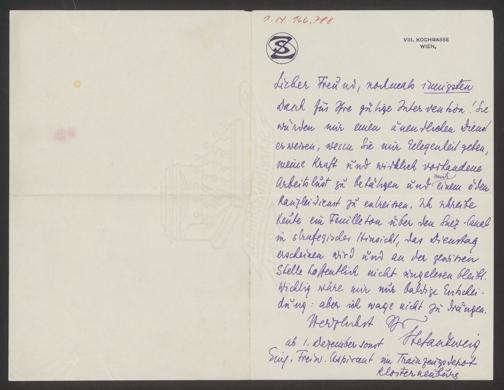 I.N 166.788
SZ
VIII. KOCHGASSE
WIEN,
Lieber Freund, nochmals innigsten
Dank für Ihre gütige Intervention! Sie
würden mir einen unendlichen Dienst
erweisen, wenn Sie mir Gelegenheit geben,
meine Kraft und wirklich vorhandene
Arbeitslust zu betätigen und mich einem öden
Kanzleidienst zu entreissen. Ich schreibe
heute ein Feuilleton über den Suez-Canal
in strategischer Hinsicht, das Dienstag
erscheinen wird und an der gewissen
Stelle hoffentlich nicht ungelesen bleibt.
Wichtig wäre mir nur baldige Entschei-
dung: aber ich wage nicht zu drängen.
Herzlichst Ihr
Stefan Zweig
ab 1. Dezember sonst
Einj. Freiw. Aspirant im Trainzeugsdepot
Klosterneuburg